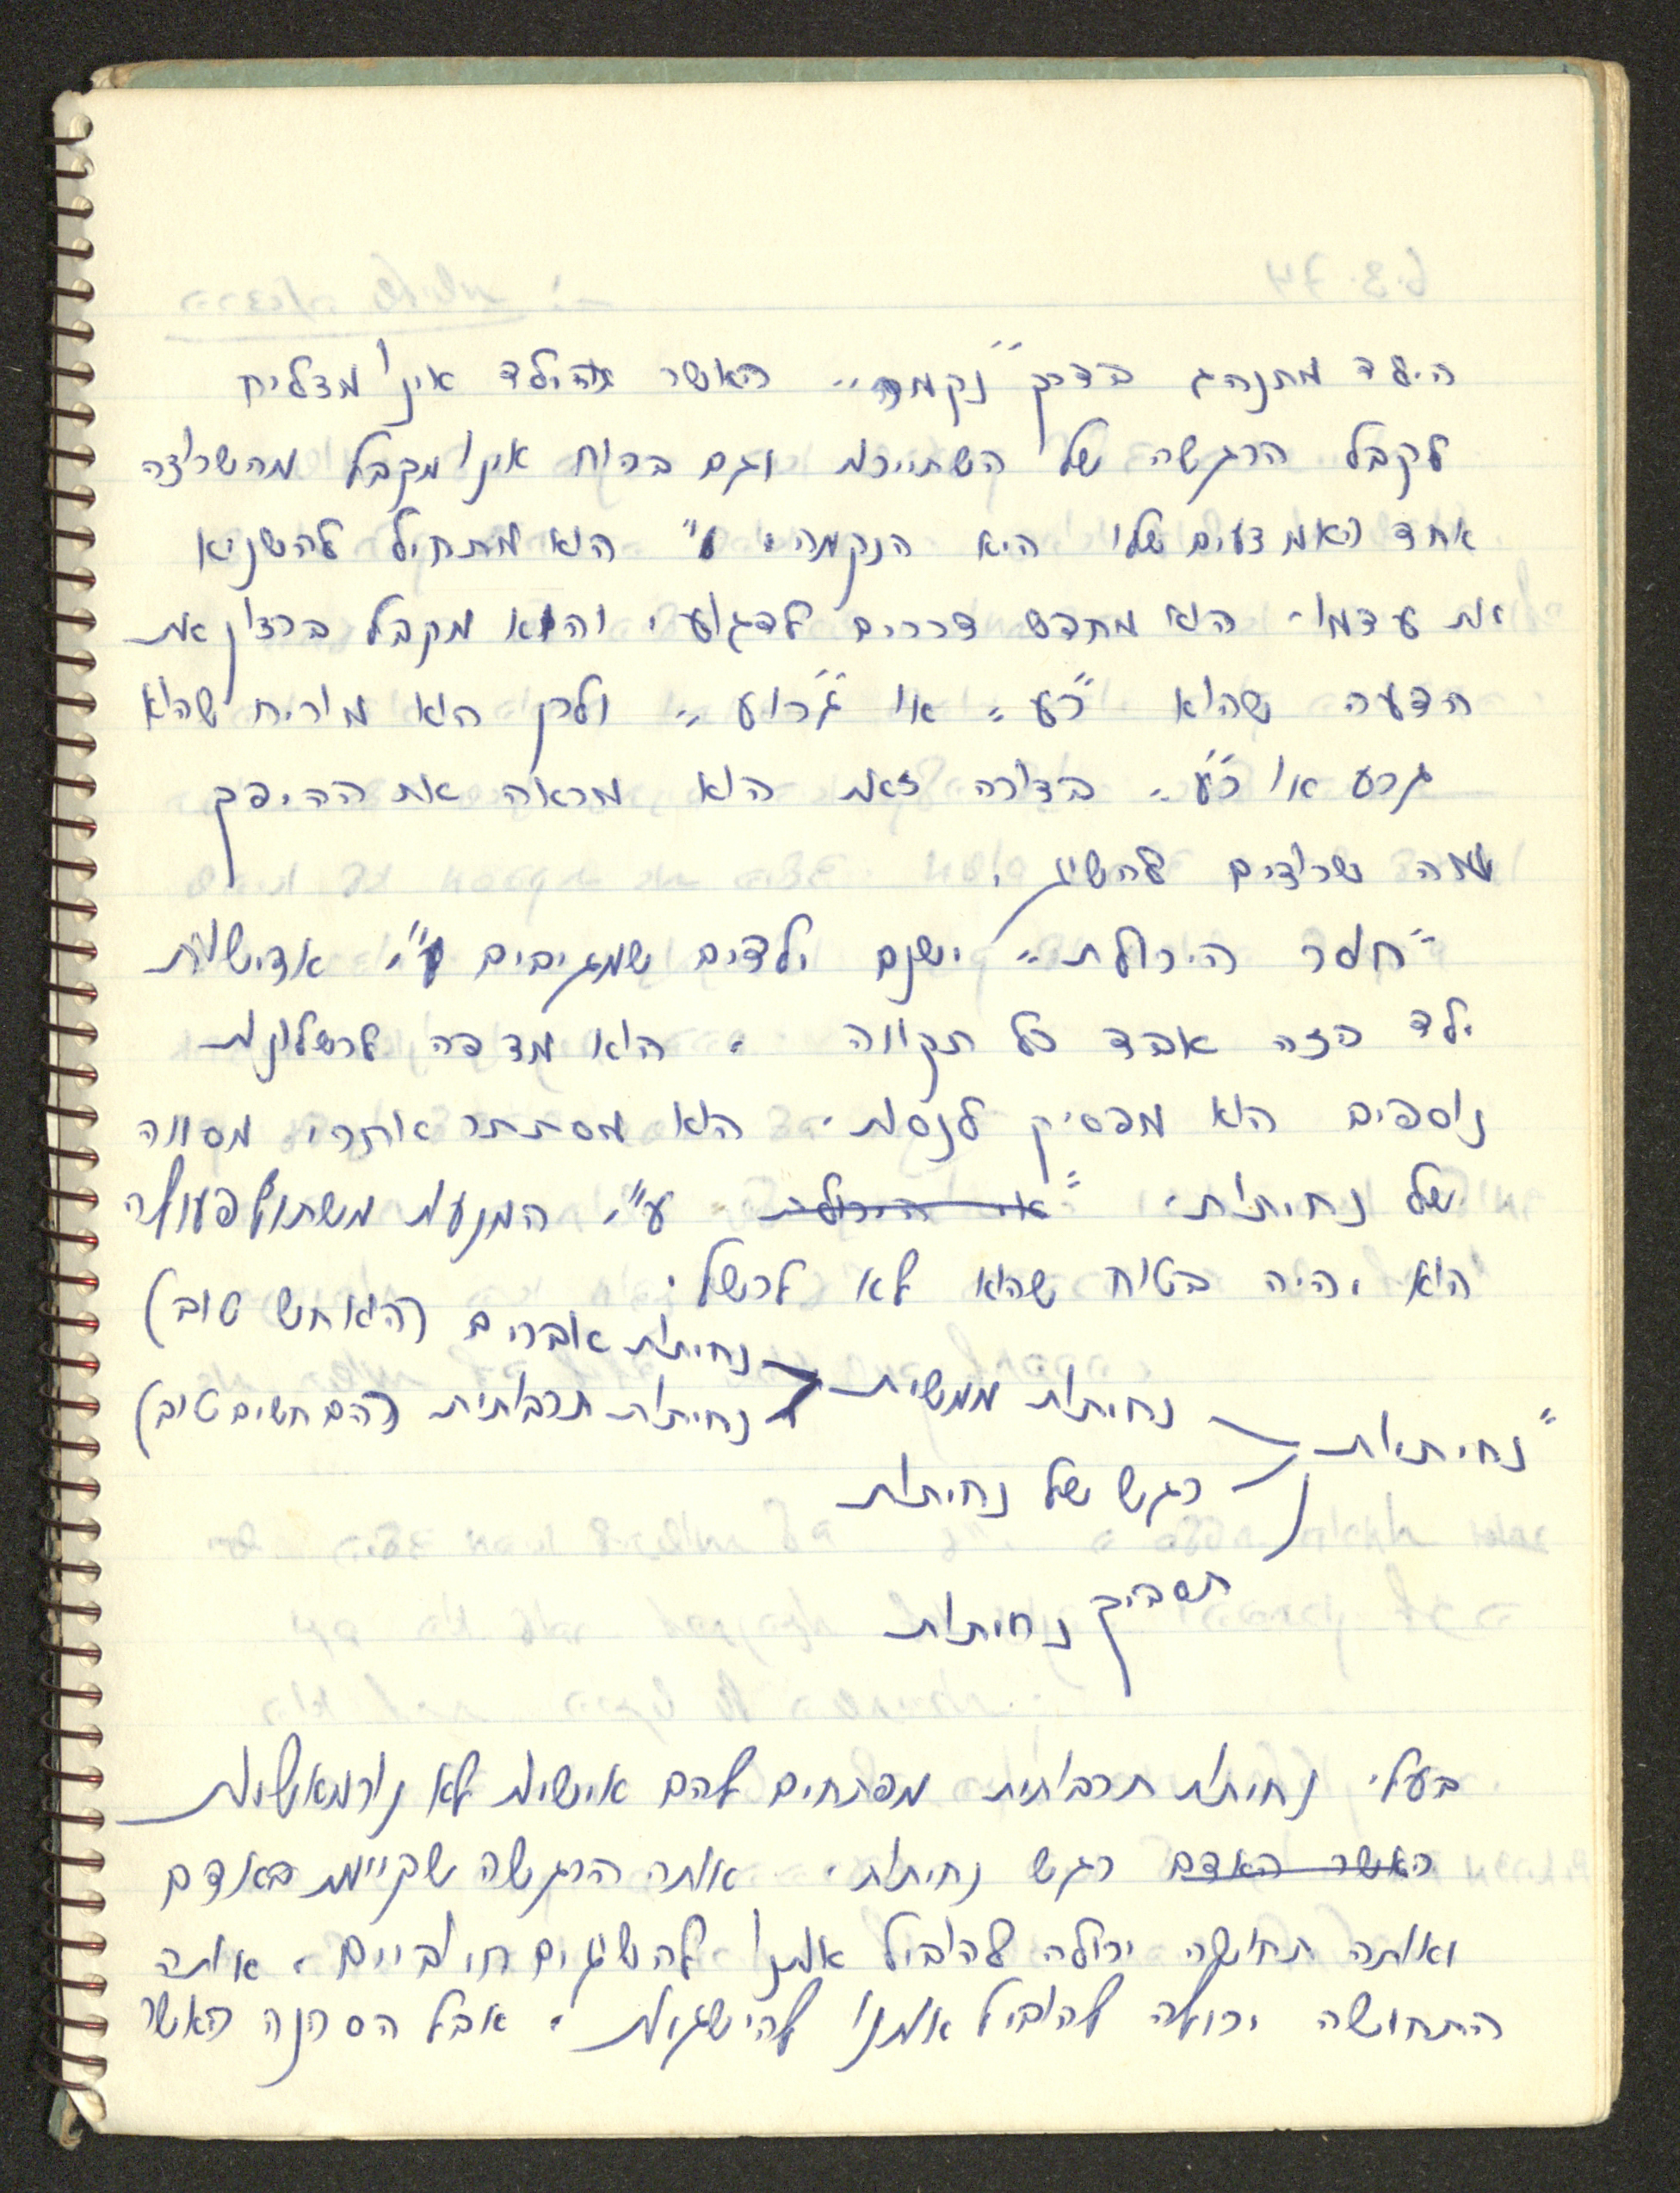 הילד מתנהג בדרך "נקמה" כאשר הילד אינו מצליח
לקבל הרגשה של השתייכות וגם בכוח אינו מקבל מהשרוצה
אחד האמצעים שלו היא הנקמה. הוא מתחיל להשניא
את עצמו. הוא מחפש דרכים לפגוע. והוא מקבל ברצון את
הדעה שהוא "רע" או "גרוע" ולכן הוא מוכיח שהוא
גרוע או רע. בצורה זאת הוא מראה את ההיפך
ממה שרוצים להשיג.
"חוסר היכולת" ישנם ילדים שמגיבים ע"י אדישות
ילד כזה אבד כל תקווה. הוא מצפה לכשלונות
נוספים הוא מפסיק לנסות. הוא מסתתר אחרי מסווה
של נחיתות. "אי היכולת ע"י המנעות משתוף פעולה
הוא יהיה בטוח שהוא לא לכשל.
"נחיתות נחיתות ממשית נחיתות אברים (האוחש טוב)
נחיתות תרבותית (הם חשים טוב)
רגש של נחיתות
תסביך נחיתות
בעלי נחיתות תרבותית מפתחים להם אישיות לא נורמאלית
כאשר האדם רגש נחיתות. אותה הרגשה שקיימת באדם
ואותה תחושה יכולה להוביל אותנו להשגים חיוביים. אותה
התחושה יכולה להוביל אותנו להישגיות. אבל הסכנה כאשר